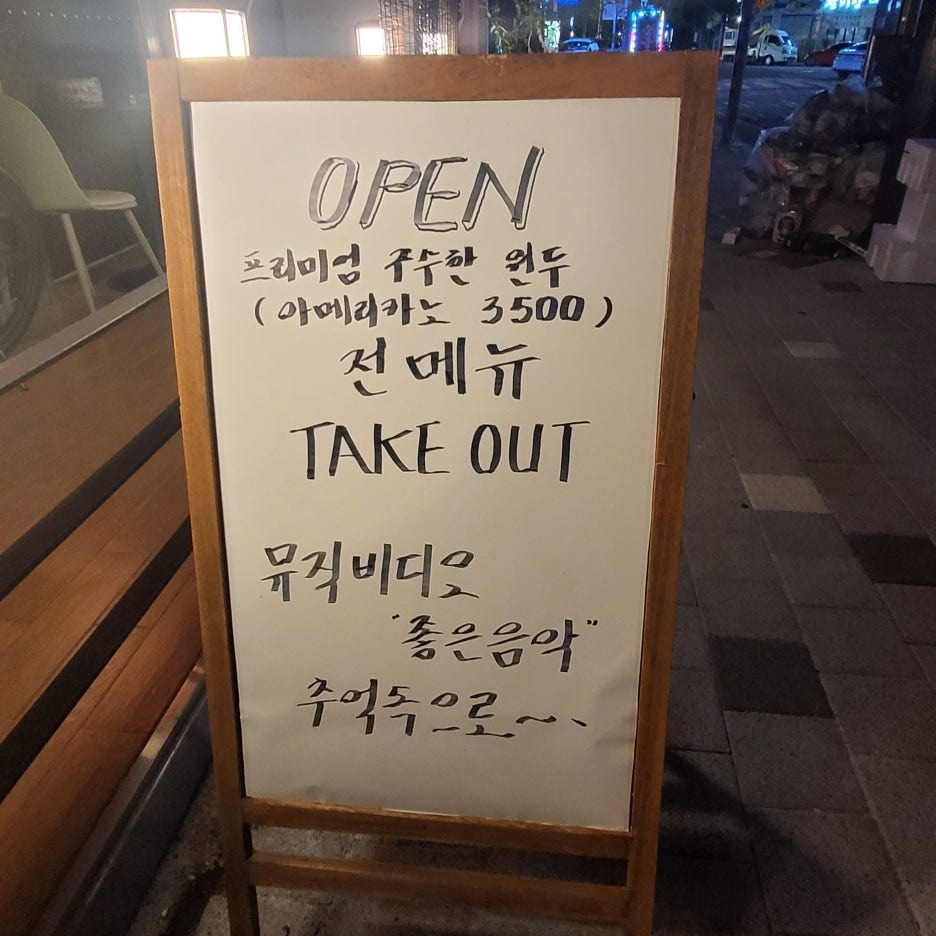 OPEN
프리미엄 구수한 원두
(아메리카노 3500)
전메뉴
TAKE OUT
뮤직비디오
"좋은음악"
추억속으로~..